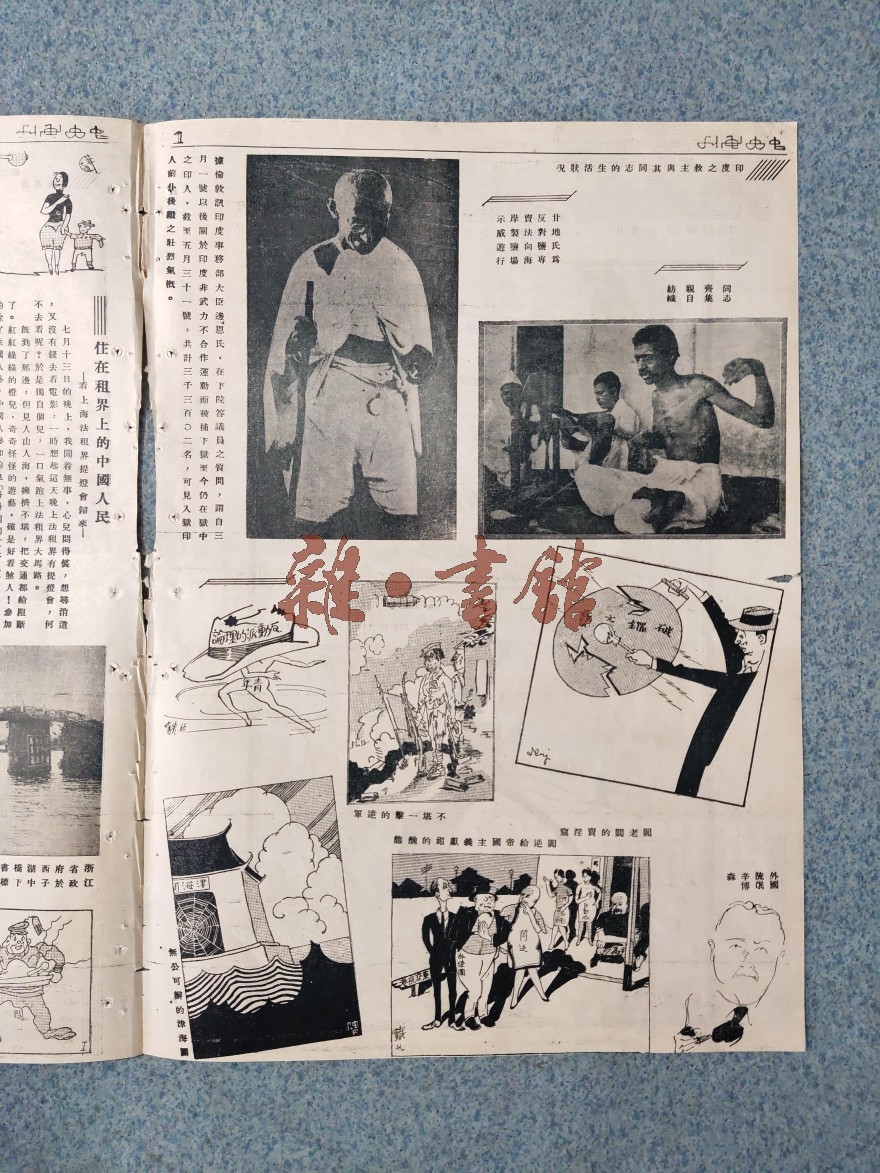 中央畫刊
1
印度之救主與其同志的生活狀況
甘地氏為
反對鹽專
賣法向海
岸製鹽場
示威遊行
同志
齊集
親自
紡織
據倫敦訊印度事務部大臣邊恩氏，在下院答議員之質問，謂自三
月一號以後關於印度非武力不合作運動而被捕下獄至今仍在獄中
之印人，截至五月三十一號，共計三千三百〇二名，可見入獄印
人前仆後繼之壯烈氣概。
雜·書館
反動派的理論
青年
不堪一擊的逆軍
閻老闆的賣淫窟
閻逆給帝國主義獻媚的醜態
閻逆
外國
流氓
辛博
森
無公可辦的津海關
津海關
中央畫刊
住在租界上的中國人民
—看上海法租界提燈會歸來—
七月十三日的晚上，我閒着無事，心兒悶得慌，想尋消遣
，又沒有錢去看電影，一時想起這天晚上法租界有提燈會，何
不去看呢？於是獨自個兒，一口氣跑上法租界大馬路。
既到了那邊，但見人山人海，擁擠不堪，把交通都給阻斷
了。紅紅綠綠的燈兒，奇奇怪怪的遊藝，確是好看煞人！參加
浙江
省政
府於
西子
湖中
橋下
書標